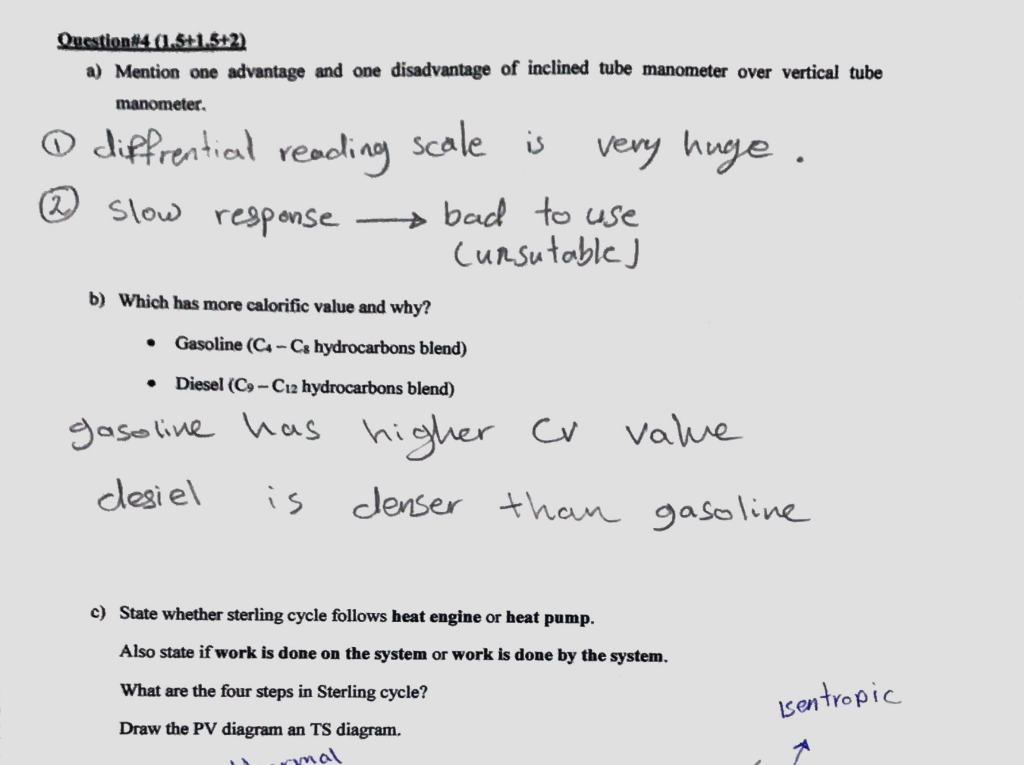 Question#4 (1.5+1.5+2)
a) Mention one advantage and one disadvantage of inclined tube manometer over vertical tube
manometer.
① diffrential reading scale is very huge.
② slow response → bad to use
(unsutable)
b) Which has more calorific value and why?
• Gasoline (C₄ – C₈ hydrocarbons blend)
• Diesel (C₉ – C₁₂ hydrocarbons blend)
gasoline has higher cv value
desiel is denser than gasoline
c) State whether sterling cycle follows heat engine or heat pump.
Also state if work is done on the system or work is done by the system.
What are the four steps in Sterling cycle?
Isentropic
Draw the PV diagram an TS diagram.